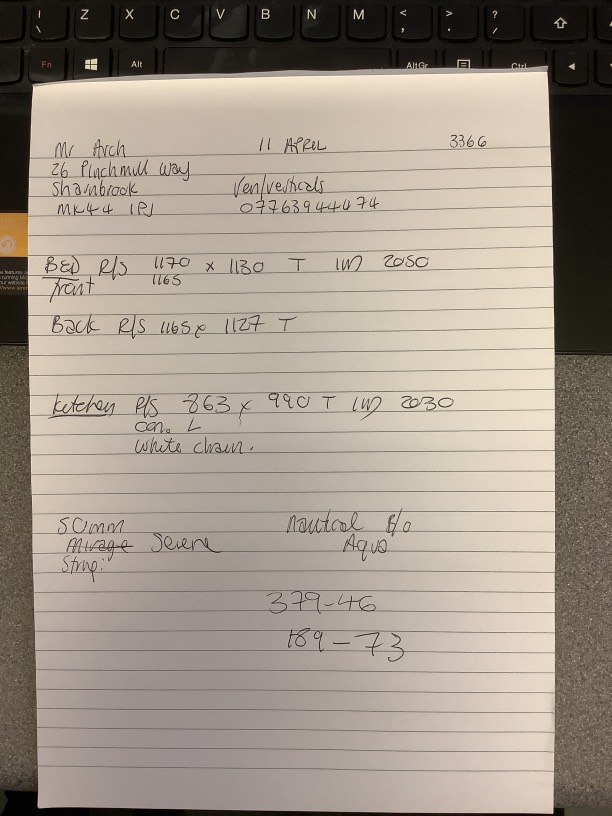 \ Z X C V B N M < , > . ? /
Fn Alt AltGr Ctrl
Mr Arch 11 APRIL 3366
26 Pinchmill Way
Sharnbrook Ven/verticals
MK44 1PJ 07763944474
BED R/S 1170 x 1130 T IW 2050
front 1165
Back R/S 1165 x 1127 T
Kitchen R/S 863 x 990 T IW 2030
con. L
White chain.
50mm Nautical B/o
Mirage Serene Aqua
Strip:
379-46
189-73